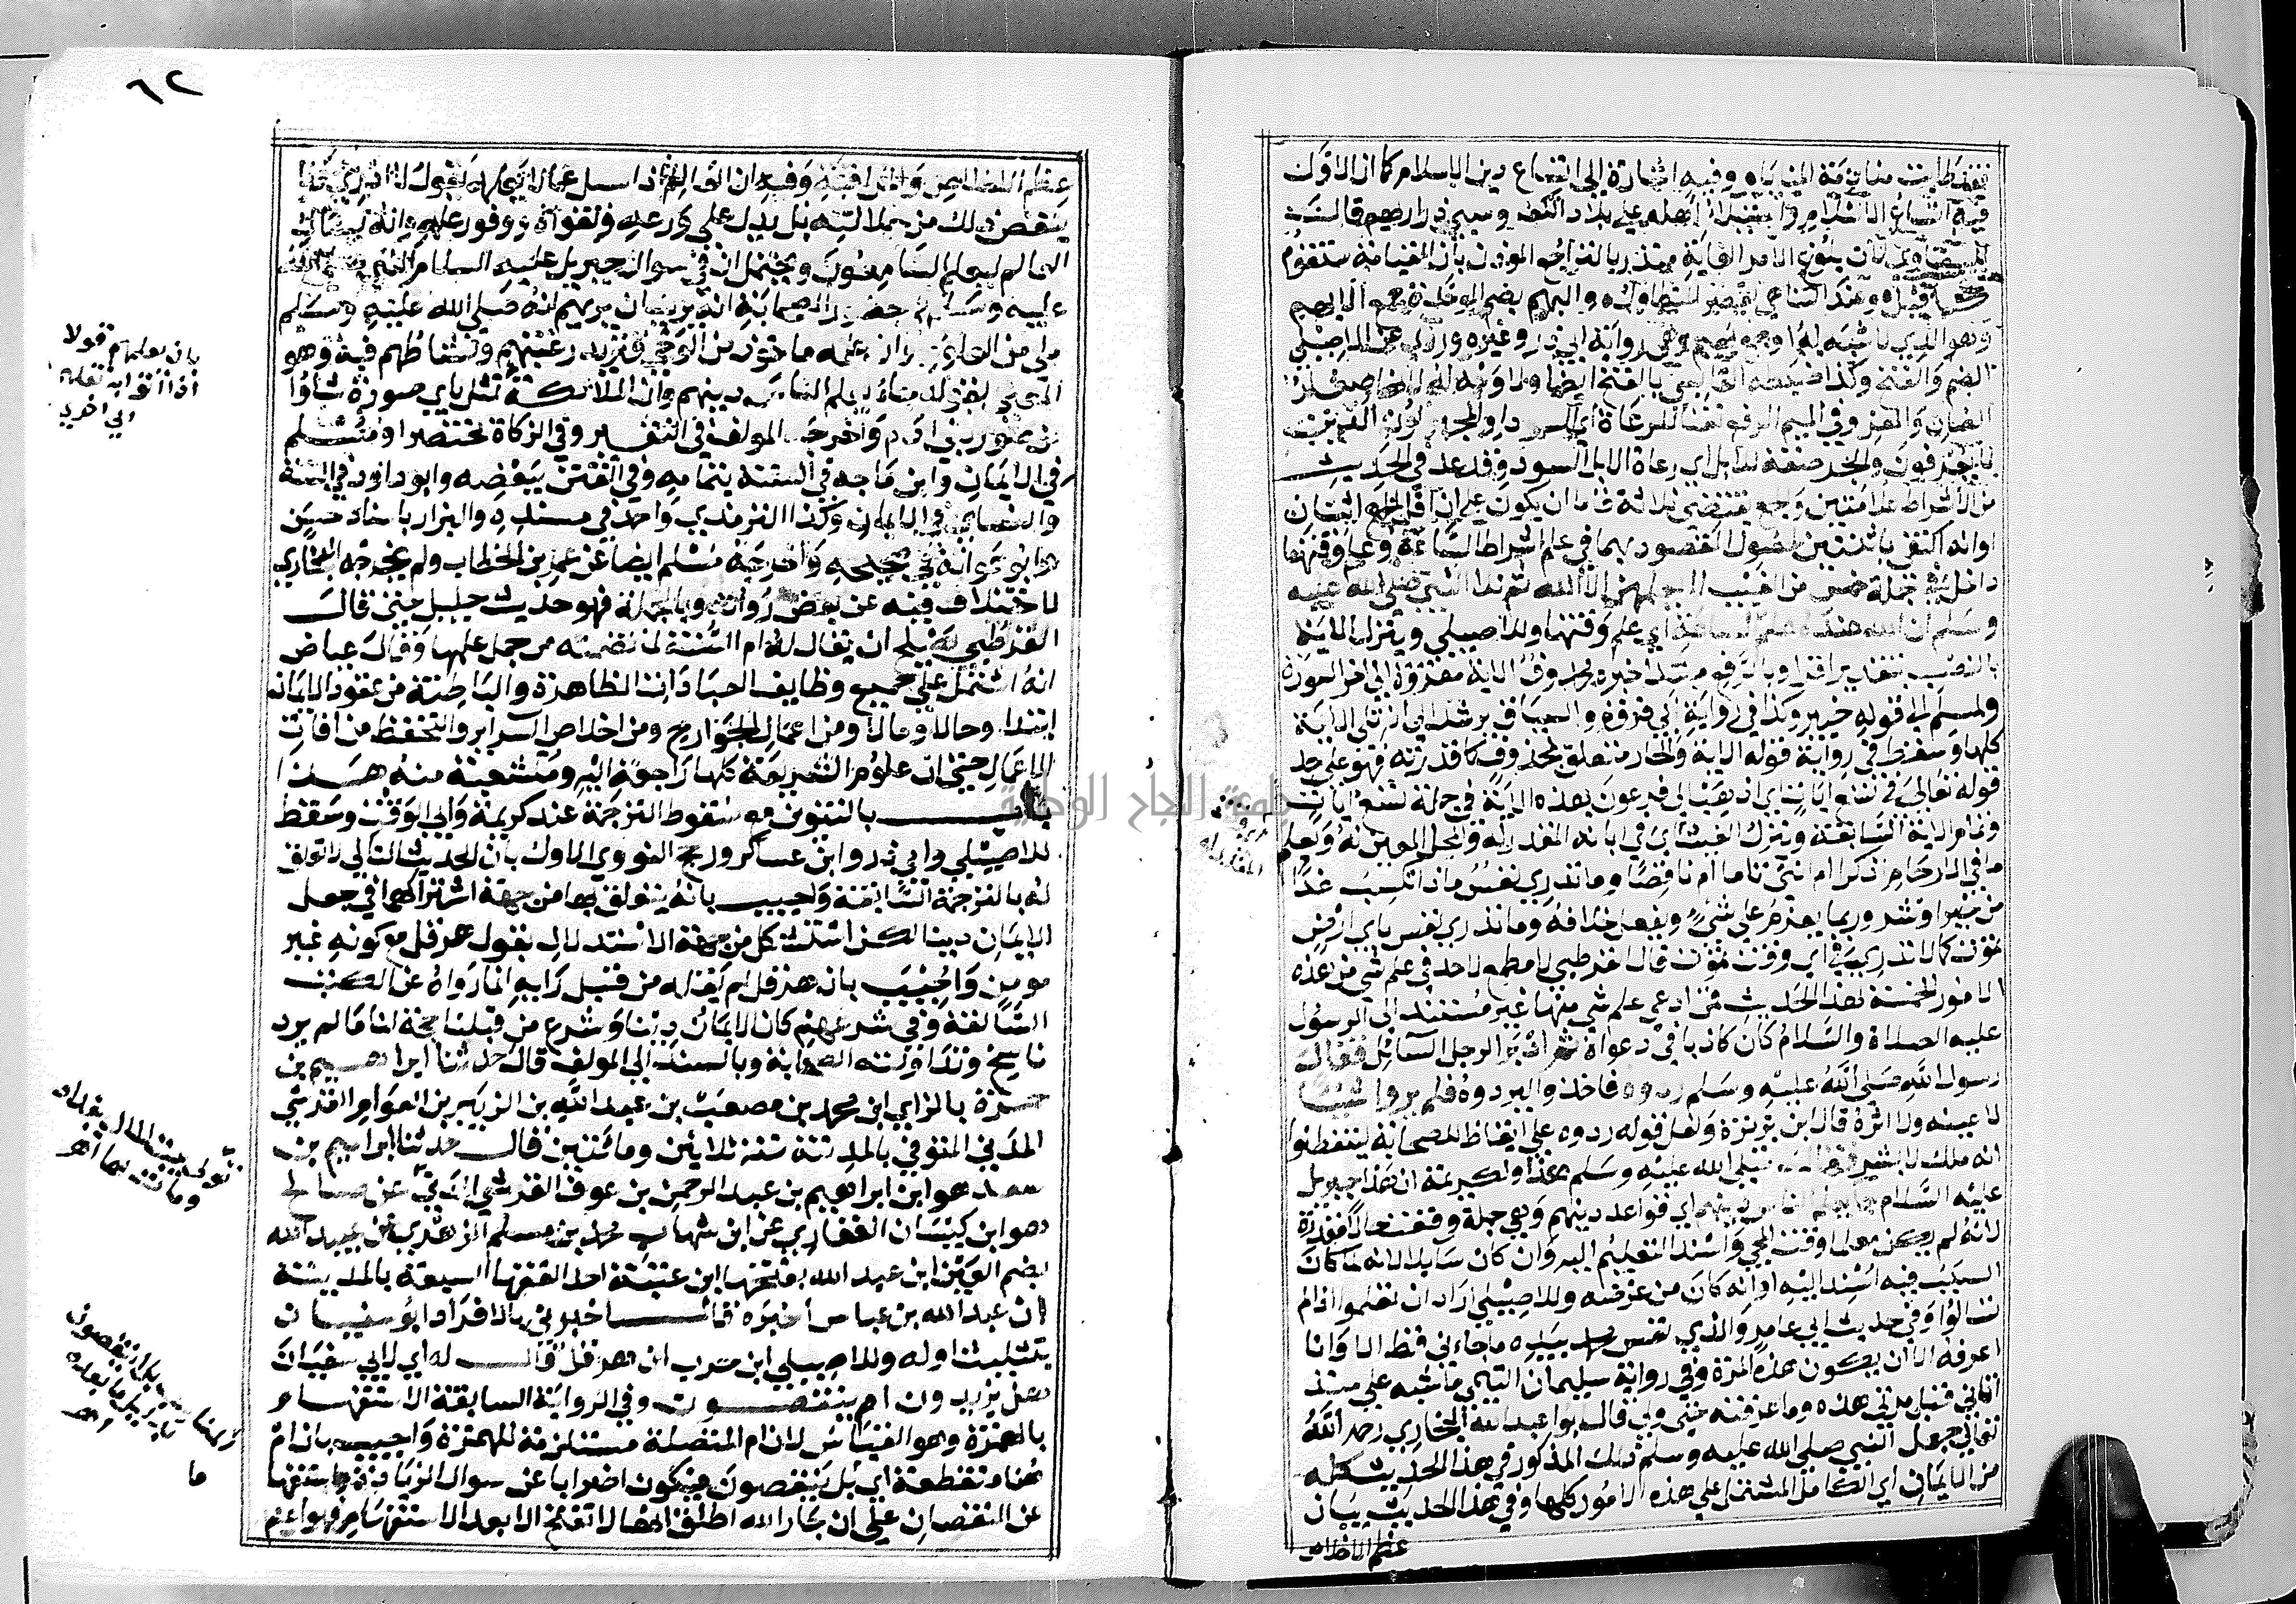 فيه اتساع الاسلام واستيلاء اهله على بلاد الكفر وسبي ذراريهم قالت
وهو الذي لا شية له او جمع بهيم وفي رواية ابي ذر وغيره وروي عن الاصيلي
الضم والفتح وكذا ضبطه القابسي بالفتح ايضا ولا وجه له
الضان والمعز وفي الميم الرفع نعتا للرعاة اي السود او المجهولون الذين
لا يعرفون والجر صفة للابل اي رعاة الابل السود وقد عد في الحديث
من الاشراط علامتين والجمع يقتضي ثلاثة فاما ان يكون على ان اقل الجمع اثنان
او انه اكتفى باثنتين لحصول المقصود بهما في علم اشراط الساعة وعلم وقتها
داخل في جملة خمس من الغيب لا يعلمهن الا الله ثم تلا النبي صلى الله عليه
وسلم ان الله عنده علم الساعة اي علم وقتها وللاصيلي وينزل الاية
بالنصب بتقدير اقرا وبالرفع مبتدا خبره محذوف اي الاية مقروة الى اخر السورة
ولمسلم الى قوله خبير وكذا في رواية ابي فروة والسياق يرشد الى انه تلى الاية
كلها وسقط في رواية قوله الاية والجار متعلق بمحذوف كما قدرته فهو على حد
قوله تعالى في تسع ايات اي اذهب الى فرعون بهذه الاية في جملة تسع ايات
وتمام الاية السابقة وينزل الغيث اي في ابانه المقدر له والمحل المعين له ويعلم
ما في الارحام اذكر ام انثى تاما ام ناقصا وما تدري نفس ماذا تكسب غدا
من خير او شر وربما يعزم على شي ويفعل خلافه وما تدري نفس باي ارض
تموت كما لا تدري في اي وقت تموت قال القرطبي لا مطمع لاحد في علم شي من هذه
الامور الخمسة لهذا الحديث فمن ادعى علم شي منها غير مستند الى الرسول
عليه الصلاة والسلام كان كاذبا في دعواه ثم ادبر الرجل السائل فقال
رسول الله صلى الله عليه وسلم ردوه فاخذوا ليردوه فلم يروا شيئا
لا عينه ولا اثره قال ابن بزيزة ولعل قوله ردوه علي ايقاظ للصحابة ليتفطنوا
انه ملك لا بشر فقال صلى الله عليه وسلم هذا ولكريمة ان هذا جبريل
عليه السلام جا يعلم الناس دينهم اي قواعد دينهم وهي جملة وقعت حالا مقدرة
لانه لم يكن معلما وقت المجي واسند التعليم اليه وان كان سايلا لانه لما كان
السبب فيه اسند اليه او انه كان من غرضه وللاصيلي اراد ان تعلموا اذ لم
تسالوا وفي حديث ابي عامر والذي نفس محمد بيده ما جاءني قط الا وانا
اعرفه الا ان يكون هذه المرة وفي رواية سليمان التيمي ما شبه علي منذ
اتاني قبل مرتي هذه وما عرفته حتى ولى قال ابو عبد الله البخاري رحمه الله
تعالى جعل النبي صلى الله عليه وسلم ذلك المذكور في هذا الحديث كله
من الايمان اي الكامل المشتمل على هذه الامور كلها وفي هذا الحديث بيان
عظم الاخلاص
٦٢
عظم الاخلاص والمراقبة وفيه ان العالم اذا سيل عما لا يعلمه يقول لا ادري ولا
ينقص ذلك من جلالته بل يدل على ورعه وتقواه ووفور علمه وانه يسال
العالم ليعلم السامعون ويحتمل ان في سوال جبريل عليه السلام النبي صلى الله
عليه وسلم في حضور الصحابة انه يريد ان يريهم انه صلى الله عليه وسلم
ملي من العلوم وان علمه ماخوذ من الوحي فتزيد رغبتهم ونشاطهم فيه وهو
المعني بقوله جاء يعلم الناس دينهم وان الملائكة تمثل باي صورة شاؤا
من صور بني ادم واخرجه المولف في التفسير وفي الزكاة مختصرا ومسلم
في الايمان وابن ماجه في السنة بتمامه وفي الفتن ببعضه وابو داود في السنة
والنسائي في الايمان وكذا الترمذي واحمد في مسنده والبزار باسناد حسن
وابو عوانة في صحيحه واخرجه مسلم ايضا عن عمر بن الخطاب ولم يخرجه البخاري
لاختلاف فيه عن بعض رواته وبالجملة فهو حديث جليل حتى قال
القرطبي يصلح ان يقال له ام السنة لما تضمنه من جمل علمها وقال عياض
انه اشتمل على جميع وظايف العبادات الظاهرة والباطنة من عقود الايمان
ابتدا وحالا ومالا ومن اعمال الجوارح ومن اخلاص السراير والتحفظ من افات
الاعمال حتى ان علوم الشريعة كلها راجعة اليه ومتشعبة منه هذا
باب بالتنوين مع سقوط الترجمة عند كريمة وابي الوقت وسقط
للاصيلي وابي ذر وابن عساكر ورجح النووي الاول بان الحديث التالي لا تعلق
له بالترجمة السابقة واجيب بانه يتعلق بها من جهة اشتراكهما في جعل
الايمان دينا لكن استشكل من جهة الاستدلال بقول هرقل مع كونه غير
مومن واجيب بان هرقل لم يقله من قبل رايه انما رواه عن الكتب
السالفة وفي شرعهم كان الايمان دينا وشرع من قبلنا حجة لنا ما لم يرد
ناسخ وتداولته الصحابة وبالسند الى المولف قال حدثنا ابراهيم بن
حمزة بالزاي ابن محمد بن مصعب بن عبد الله بن الزبير بن العوام القرشي
المدني المتوفي بالمدينة سنة ثلاثين ومائتين قال حدثنا ابراهيم بن
سعد هو ابن ابراهيم بن عبد الرحمن بن عوف القرشي المدني عن صالح
هو ابن كيسان الغفاري عن ابن شهاب محمد بن مسلم الزهري عن عبيد الله
بضم العين ابن عبد الله بفتحها ابن عتبة احد الفقها السبعة بالمدينة
ان عبد الله بن عباس اخبره قال اخبرني بالافراد ابو سفيان
بتثليث اوله وللاصيلي ابن حرب ان هرقل قال له اي لابي سفيان
هل يزيدون ام ينقصون وفي الرواية السابقة الاستفهام
بالهمزة وهو القياس لان ام المتصلة مستلزمة للهمزة واجيب بان ام
هنا منقطعة اي بل ينقصون فيكون اضرابا عن سوال الزيادة واستفهاما
عن النقصان على ان جار الله اطلق انها لا تقع الا بعد الاستفهام فهو اعم
بان يعلمهم قولا
ما
جامعة النجاح الوطنية